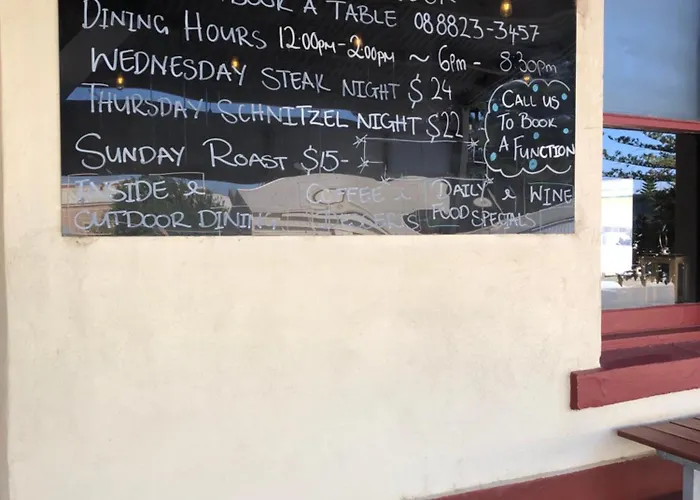 BOOK A TABLE 08 8823-3457
DINING HOURS 12:00PM-2:00PM ~ 6PM - 8:30PM
WEDNESDAY STEAK NIGHT $24
THURSDAY SCHNITZEL NIGHT $22
SUNDAY ROAST $15-
CALL US
TO BOOK
A FUNCTION
INSIDE &
OUTDOOR DINING
COFFEE &
DESSERTS
DAILY
FOOD SPECIALS
& WINE